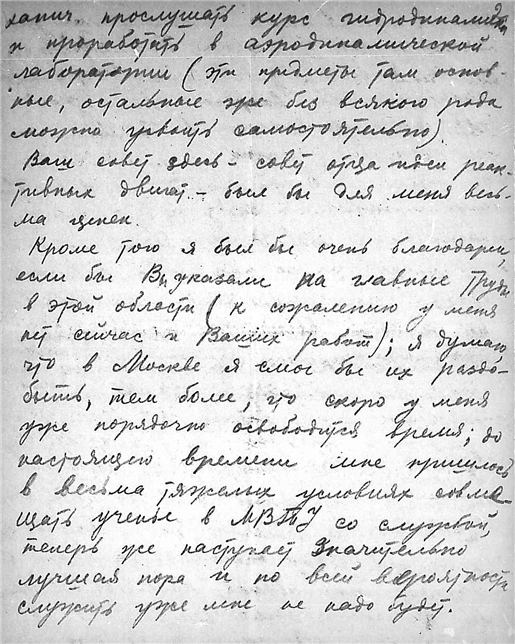 ханич. прослушать курс гидродинамики
и проработать в аэродинамической
лаборатории (эти предметы там основ-
ные, остальные же без всякого рода
можно усвоить самостоятельно).
Ваш совет здесь – совет отца идеи реак-
тивных двигат. – был бы для меня весь-
ма ценен.
Кроме того я был бы очень благодарен,
если бы Вы указали на главные труды
в этой области (к сожалению у меня
нет сейчас и Ваших работ); я думаю,
что в Москве я смог бы их раздо-
быть, тем более, что скоро у меня
уже порядочно освободится время; до
настоящего времени мне пришлось
в весьма тяжелых условиях совме-
щать ученье в МВТУ со службой,
теперь же наступает значительно
лучшая пора и по всей вероятности
служить уже мне не надо будет.